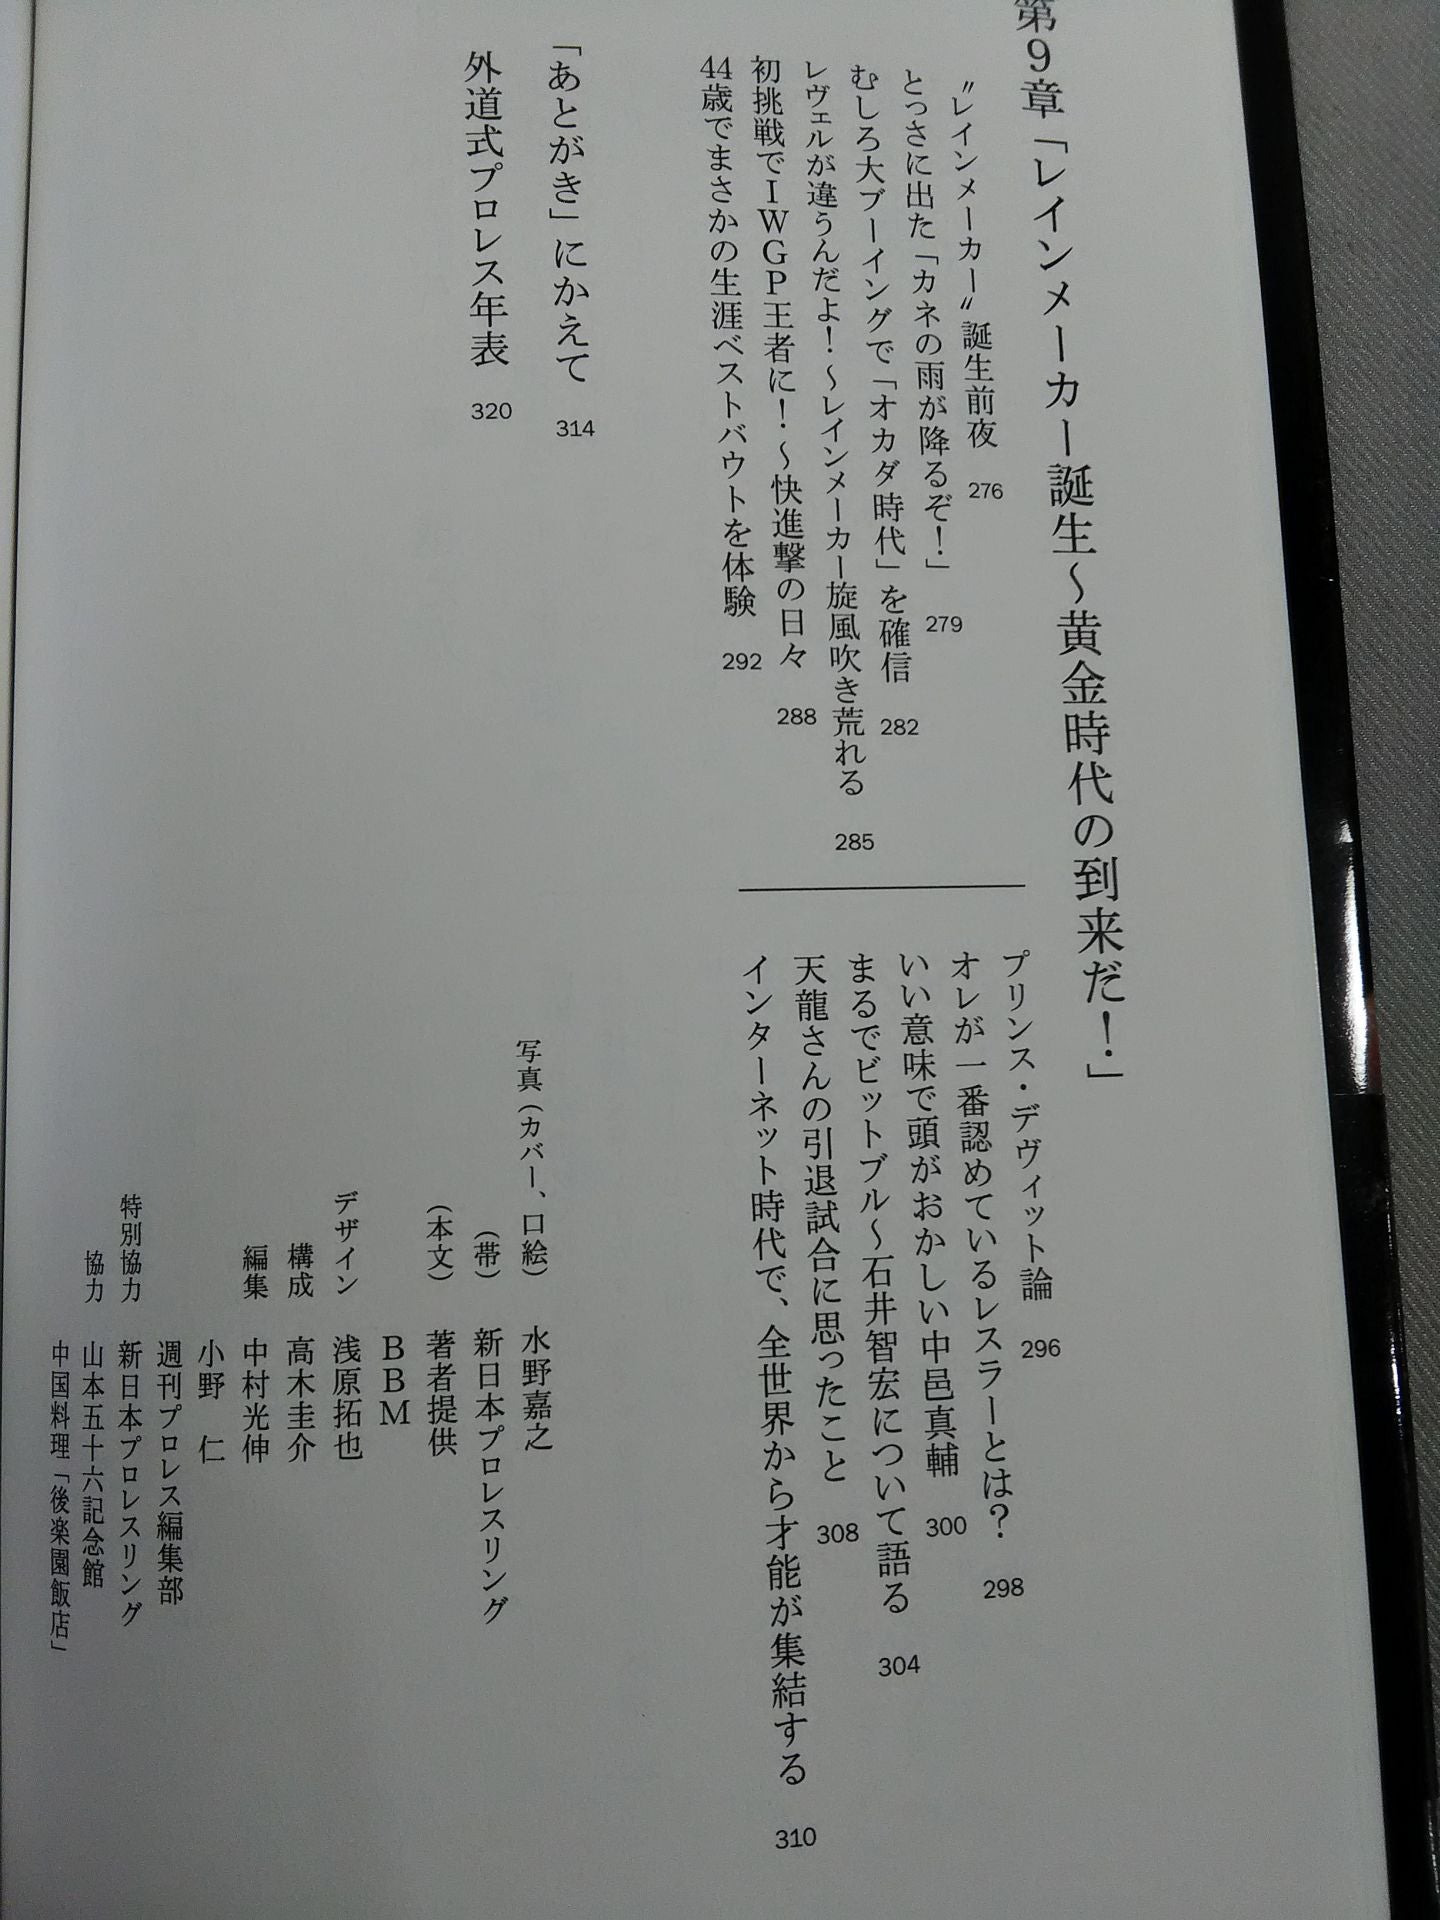 第9章「レインメーカー誕生〜黄金時代の到来だ！」
〝レインメーカー〟誕生前夜 276
とっさに出た「カネの雨が降るぞ！」 279
むしろ大ブーイングで「オカダ時代」を確信 282
レヴェルが違うんだよ！〜レインメーカー旋風吹き荒れる 285
初挑戦でIWGP王者に！〜快進撃の日々 288
44歳でまさかの生涯ベストバウトを体験 292
プリンス・デヴィット論 296
オレが一番認めているレスラーとは？ 298
いい意味で頭がおかしい中邑真輔 300
まるでピットブル〜石井智宏について語る 304
天龍さんの引退試合に思ったこと 308
インターネット時代で、全世界から才能が集結する 310
「あとがき」にかえて 314
外道式プロレス年表 320
写真（カバー、口絵） 水野嘉之
（帯） 新日本プロレスリング
（本文） 著者提供
BBM
デザイン 浅原拓也
構成 高木圭介
編集 中村光伸
小野 仁
週刊プロレス編集部
特別協力 新日本プロレスリング
協力 山本五十六記念館
中国料理「後楽園飯店」